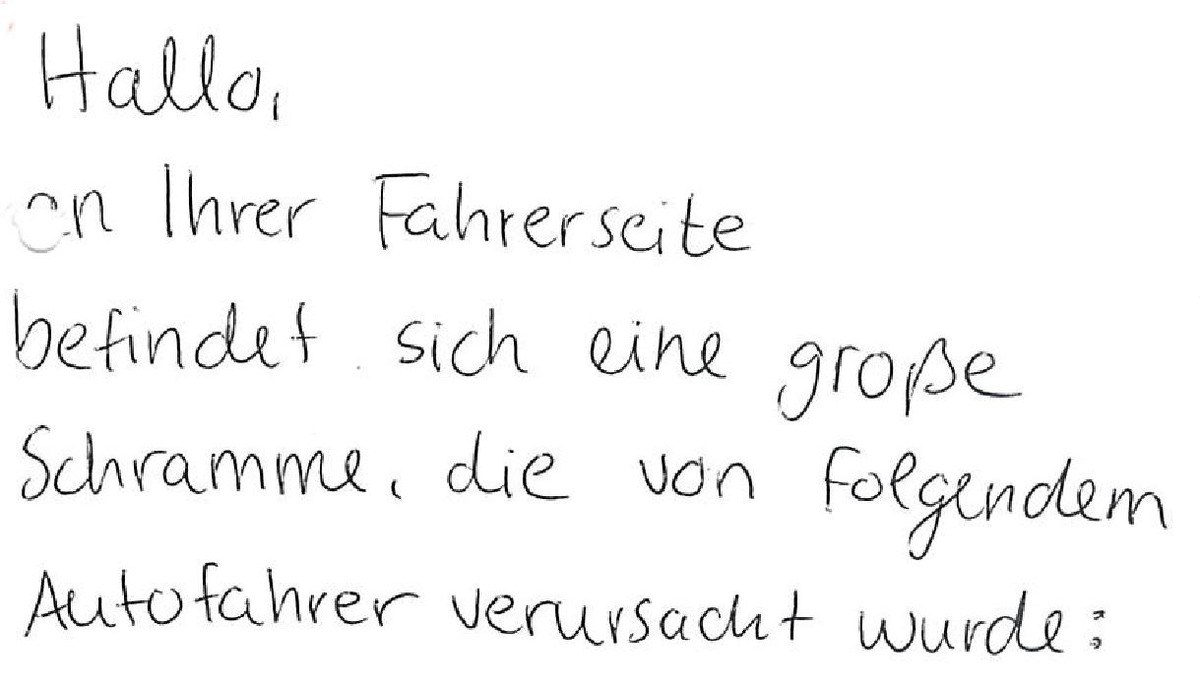 Hallo,
an Ihrer Fahrerseite
befindet sich eine große
Schramme, die von folgendem
Autofahrer verursacht wurde: